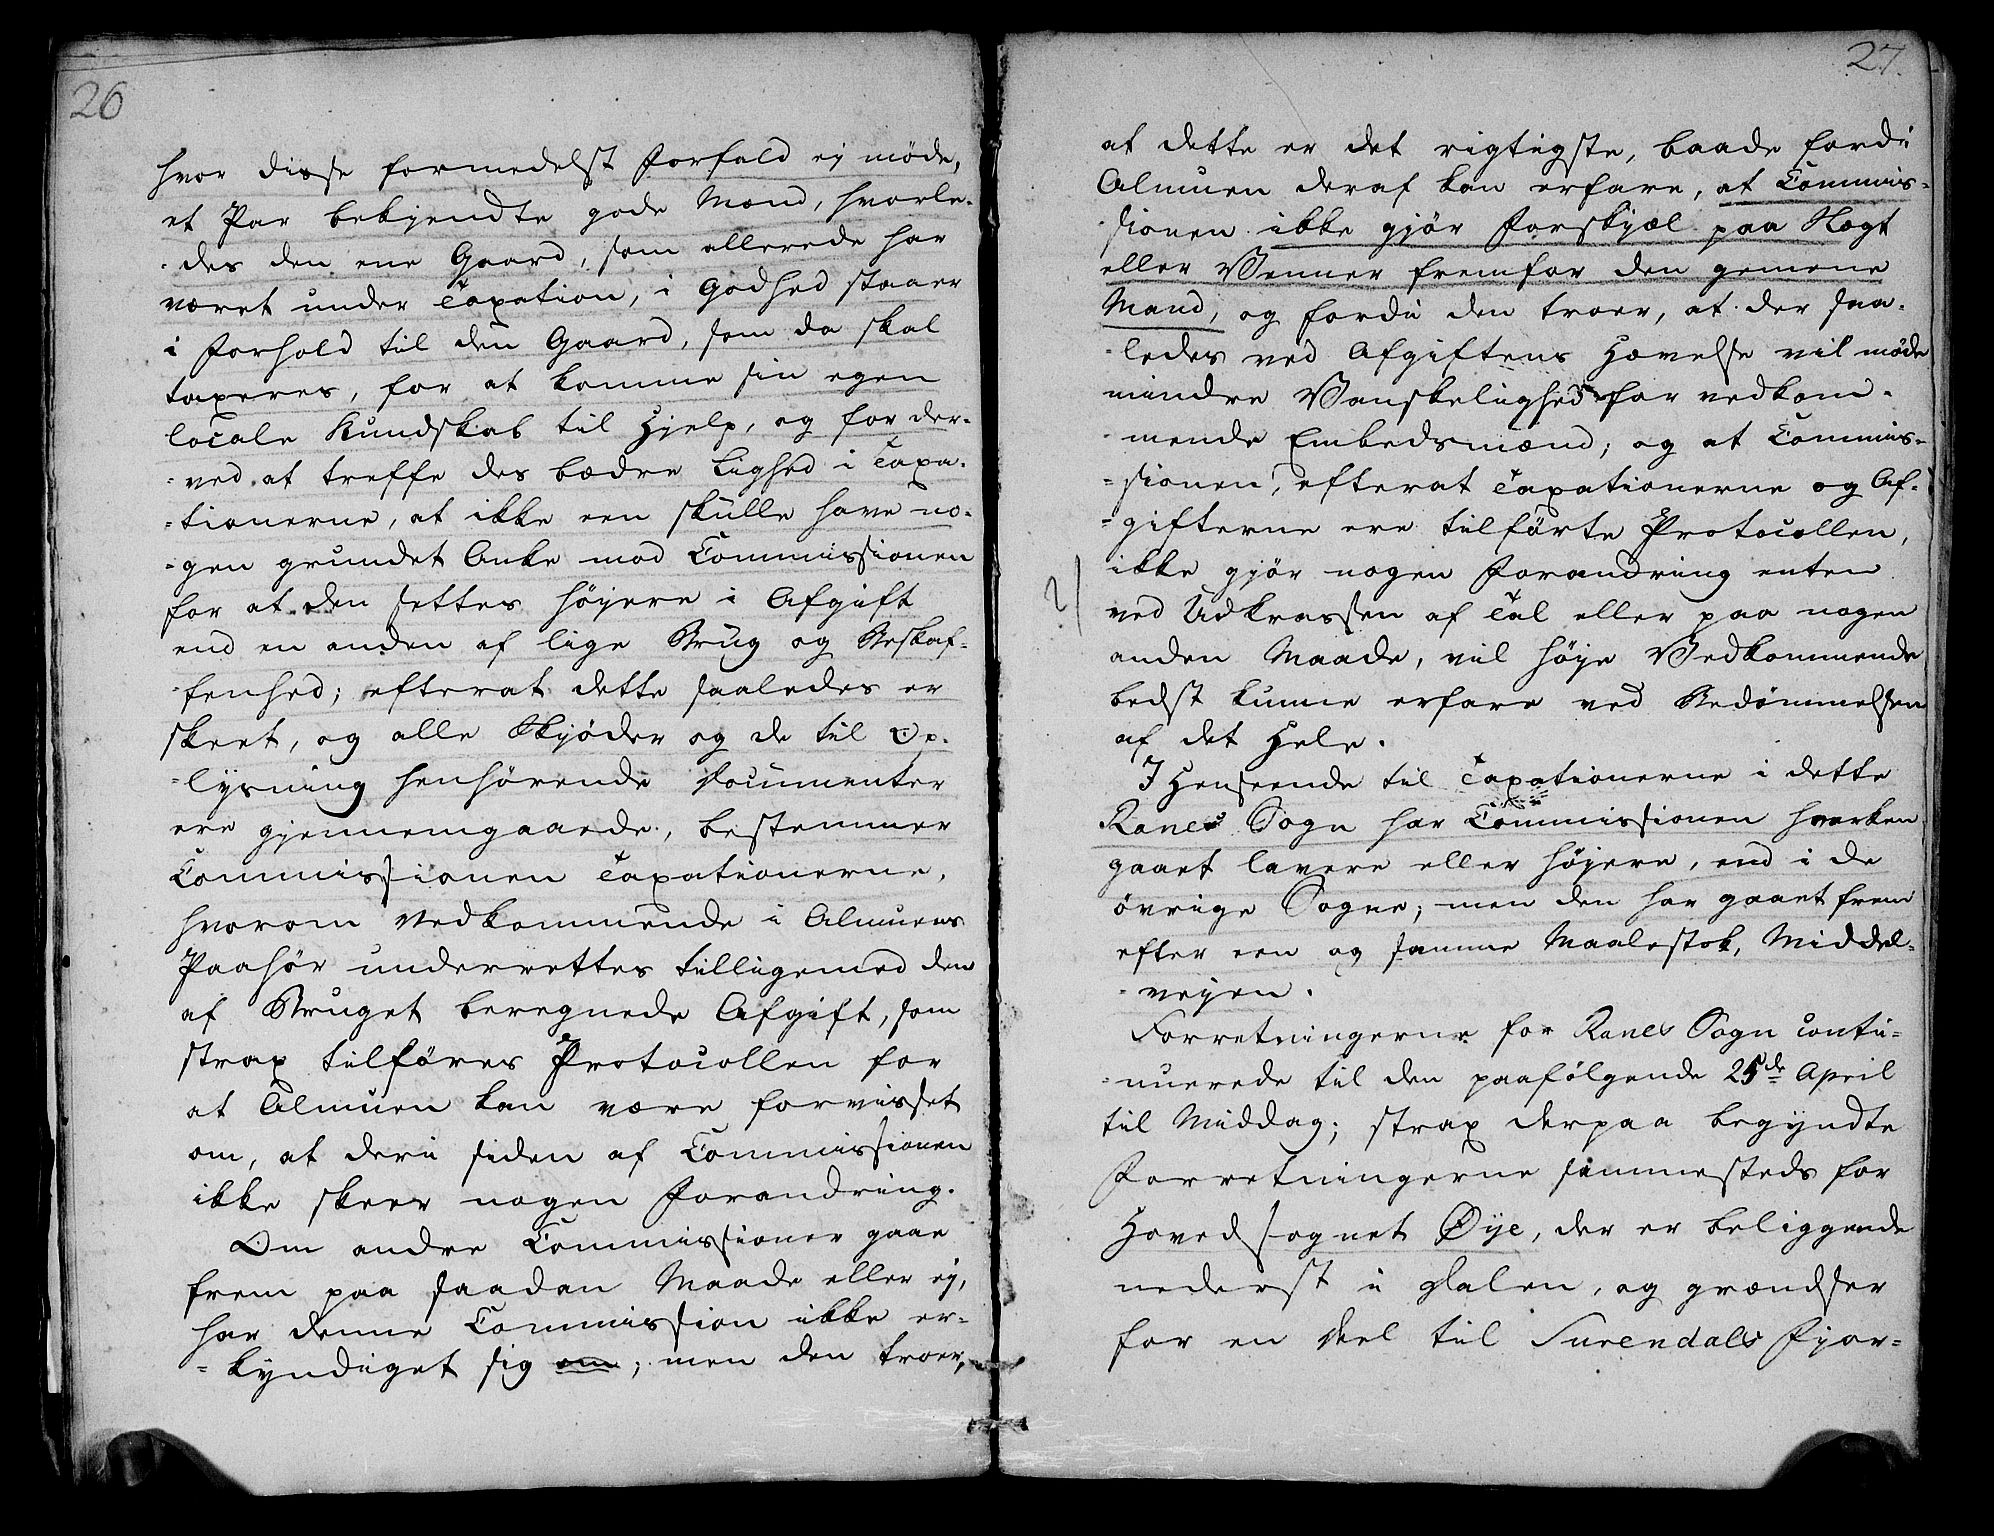 26
hvor disse formedelst Forfald ej møde,
et Par bekjendte gode Mænd, hvorle-
-des den ene Gaard, som allerede har
været under Taxation, i Godhed staaer
i Forhold til den Gaard, som da skal
taxeres, for at komme sin egen
locale Kundskab til Hjelp, og for der-
-ved at treffe des bædre Lighed i Taxa-
-tionerne, at ikke een skulle have no-
-gen grundet Anke mod Commissionen
for at den settes høyere i Afgift
end en anden af lige Brug og Beskaf-
-fenhed; efterat dette saaledes er
skeet, og alle Skjøder og de til Op-
-lysning henhørende Documenter
ere gjennemgaaede, bestemmer
Commissionen Taxationerne,
hvorom Vedkommende i Almuens
Paahør underrettes tilligemed den
af Bruget beregnede Afgift, som
strax tilføres Protocollen for
at Almuen kan være forvisset
om, at deri siden af Commissionen
ikke skeer nogen Forandring.
Om andre Commissioner gaae
frem paa saadan Maade eller ej,
har denne Commission ikke er-
-kyndiget sig om; men den troer,
27.
at dette er det rigtigste, baade fordi
Almuen deraf kan erfare, at Commis-
-sionen ikke gjør Forskjæl paa Slægt
eller Venner fremfor den gemene
Mand, og fordi den troer, at der saa-
-ledes ved Afgiftens Hævelse vil møde
mindre Vanskelighed for vedkom-
-mende Embedsmænd; og at Commis-
-sionen, efterat Taxationerne og Af-
-gifterne ere tilførte Protocollen,
ikke gjør nogen Forandring enten
ved Udkrassen af Tal eller paa nogen
anden Maade, vil høje Vedkommende
bedst kunne erfare ved Bedømmelsen
af det Hele.
I Henseende til Taxationerne i dette
Ranes Sogn har Commissionen hverken
gaaet lavere eller høyere, end i de
øvrige Sogne; men den har gaaet frem
efter een og samme Maalestok, Middel-
-vejen.
Forretningerne for Ranes Sogn conti-
-nuerede til den paafølgende 25de April
til Middag; strax derpaa begyndte
Forretningerne sammesteds for
Hovedsognet Øye, der er beliggende
nederst i Dalen, og grændser
for en Deel til Surendals Fjor-